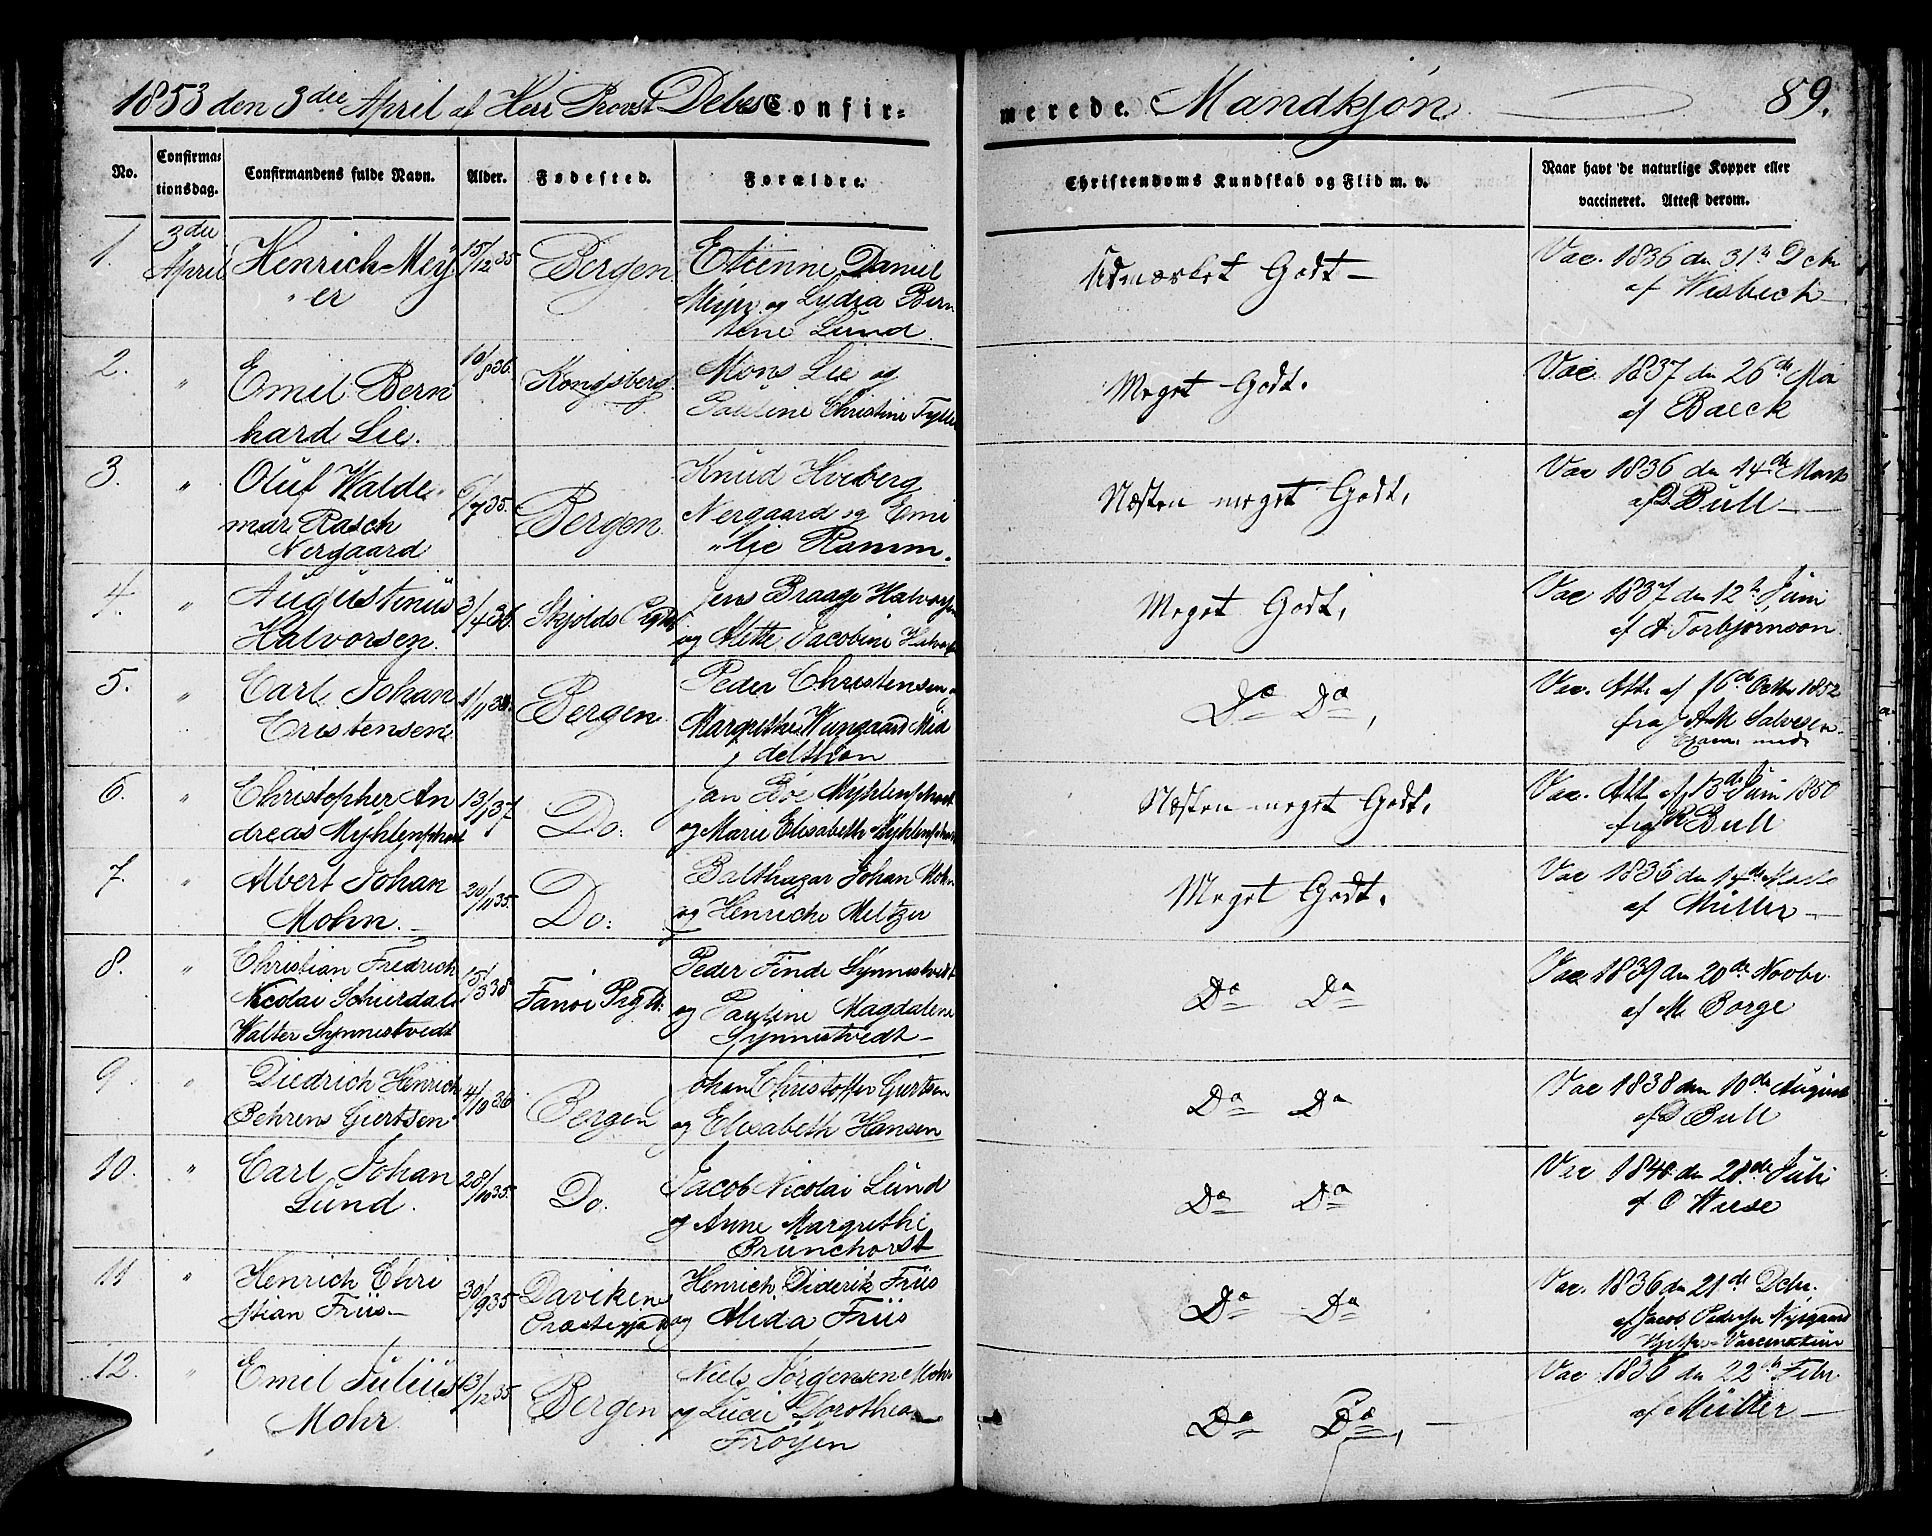 1853 den 3die April af Herr Provst Debes Confir-
merede. Mandkjøn 89.
No. Confirmationsdag. Confirmandens fulde Navn. Alder. Fødested. Forældre. Christendoms Kundskab og Flid m. v. Naar havt de naturlige Kopper eller vaccineret. Attest derom.
1. 3die Henrich Mey 15/12 35 Bergen Etienne Daniel Udmærket Godt Vac. 1836 den 31te Dcbr
April er Meyer og Lydia Bern af Wisbech
tine Lund.
2. " Emil Bern 10/8 36. Kongsberg. Mons Lie og Meget Godt. Vac 1837 den 26de Mai
hard Lie. Pauline Christine af Baeck
3. " Oluf Walde 6/7 35. Bergen. Knud Hveberg Næsten meget Godt. Vac 1836 den 14de Marts
mar Rasch Nergaard og Emi af D Bull
Nergaard lie Ramm.
4. " Augustinus 3/4 36 Skjolds Prgtd Jens Braage Halvorsen Meget Godt. Vac 1837 den 12te Juni
Halvorsen. og Alette Jacobine af A Torbjørnson.
5. " Carl Johan Bergen. Peder Christensen og Do Do, Vac. Att. af 16de Octbr 1852
Cristensen Margrethe Wung aard Mid fra A M Salvesen
delthon Exam. med.
6. " Christopher An 13/1 37 Do. Jan Böe Myhlenphort Næsten meget Godt. Vac. Att. af 13de Juni 1850
dreas Myhlenphort og Marie Elisabeth Myhlenphort fra R Bull
7. " Albert Johan 30/11 35. Do: Balthazar Johan Mohn Meget Godt. Vac 1836 den 14de Marts
Mohn. og Henriche Meltzer af Müller
8. " Christian Fredrich 15/3 38 Fanöe Prgtd. Peder Finde Synnestvedt Do Do Vac 1839 den 20de Novbr.
Nicolai Schierdal og Pauline Magdalene af M. Borge
Walter Synnestvedt Synnestvedt
9. " Diedrich Henrich 4/10 36 Bergen Johan Christoffer Giertsen Do Do Vac 1838 den 10de August
Behrens Giertsen og Elisabeth Hansen af D Bull
10. " Carl Johan 28/10 35. Do. Jacob Nicolai Lund Do Do Vac 1840 den 28de Juli
Lund. og Anne Margrethe af O Wiese
Brunchorst
11 " Henrich Chri 30/9 35 Daviken Henrich Diderik Friis Do Do Vac. 1836 den 21de Dcbr.
stian Friis Præstegjæld og Alida Friis af Jacob Pedersen Nysgaard
Vaccinatiun
12. " Emil Julius 13/12 35. Bergen Niels Jørgensen Mohr Do Do, Vac 1836 den 22de Febr.
Mohr. og Lucie Dorothea af Müller
Frøyen